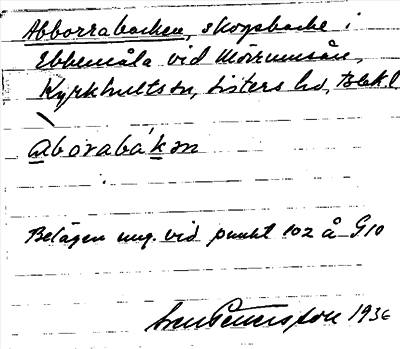 Abborrabacken, skogsbacke i
Ebbemåla vid Mörrumsån,
Kyrkhults sn, Listers hd, Blekl
àborabákən
Belägen ung. vid punkt 102 å G10
Sven Petersson 1936